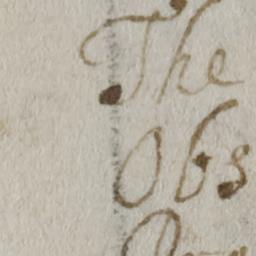 The
Obs